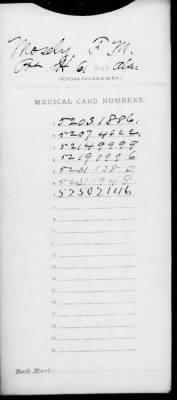 Mosely, F M.
Co. H, 61 Reg't Ala.
(Confederate.)
MEDICAL CARD NUMBERS.
1 52031886.
2 52074622.
3 52149999
4 52190996
5 52311380
6 52311948
7 57507116
8
9
10
11
12
13
14
15
16
17
18
19
20
Book Mark: